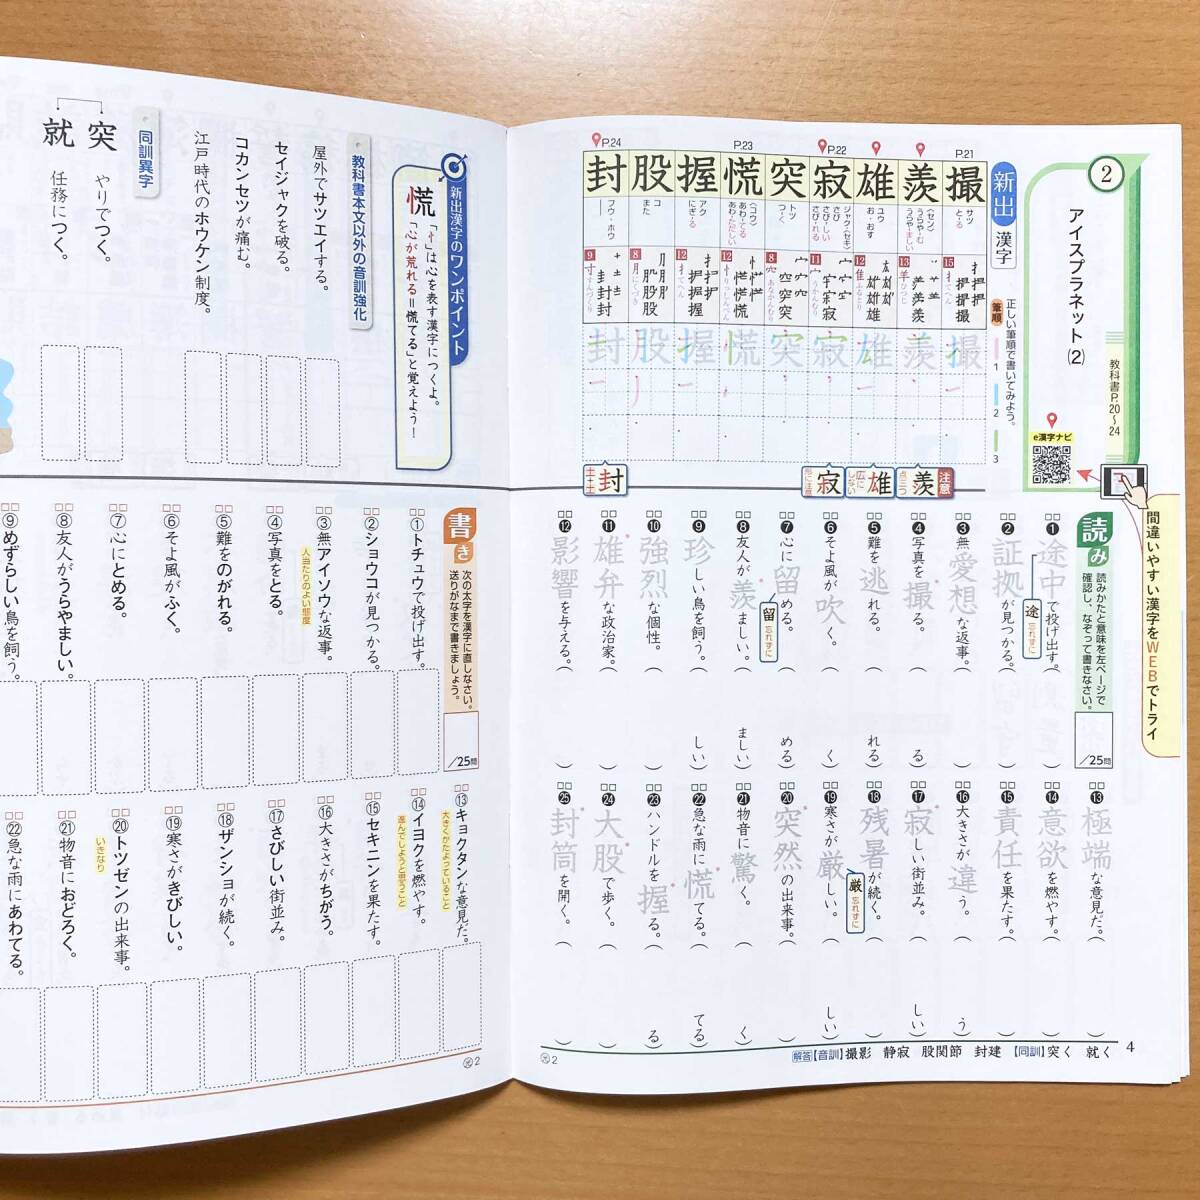 2
アイスプラネット(2)
教科書P.20〜24
e漢字ナビ
間違いやすい漢字をWEBでトライ
新出漢字
正しい筆順で書いてみよう。
筆順
1
2
3
P.21
撮
サツ
と-る
15
扌てへん
羨
〈セン〉
うらや-む
うらや-ましい
13
羊ひつじ
雄
ユウ
お・おす
12
隹ふるとり
P.22
寂
ジャク・〈セキ〉
さび
さび-しい
さび-れる
11
宀うかんむり
突
トツ
つ-く
8
穴あなかんむり
P.23
慌
〈コウ〉
あわ-てる
あわ-ただしい
12
忄りっしんべん
握
アク
にぎ-る
12
扌てへん
股
コ
また
8
月にくづき
P.24
封
フウ・ホウ
9
寸すんづくり
注意
羨
点三つ
雄
広にしない
寂
封
土+土
読み
読みかたと意味を左ページで確認し、なぞって書きなさい。
/25問
❶途中で投げ出す。( )
途 忘れずに
❷証拠が見つかる。( )
❸無愛想な返事。( )
❹写真を撮る。( る)
❺難を逃れる。( れる)
❻そよ風が吹く。( く)
❼心に留める。( める)
留 忘れずに
❽友人が羨ましい。( ましい)
❾珍しい鳥を飼う。( しい)
❿強烈な個性。( )
⓫雄弁な政治家。( )
⓬影響を与える。( )
⓭極端な意見だ。( )
⓮意欲を燃やす。( )
⓯責任を果たす。( )
⓰大きさが違う。( う)
⓱寂しい街並み。( しい)
⓲残暑が続く。( )
⓳寒さが厳しい。( しい)
厳 忘れずに
⓴突然の出来事。( )
㉑物音に驚く。( く)
㉒急な雨に慌てる。( てる)
㉓ハンドルを握る。( る)
㉔大股で歩く。( )
㉕封筒を開く。( )
解答【音訓】撮影 静寂 股関節 封建 【同訓】突く 就く
4
光2
新出漢字のワンポイント
慌
「忄」は心を表す漢字につくよ。
「心が荒れる=慌てる」と覚えよう!
教科書本文以外の音訓強化
屋外でサツエイする。
セイジャクを破る。
コカンセツが痛む。
江戸時代のホウケン制度。
同訓異字
突 やりでつく。
就 任務につく。
書き
次の太字を漢字に直しなさい。送りがなまで書きましょう。
/25問
①トチュウで投げ出す。
②ショウコが見つかる。
③無アイソウな返事。
人当たりのよい態度
④写真をとる。
⑤難をのがれる。
⑥そよ風がふく。
⑦心にとめる。
⑧友人がうらやましい。
⑨めずらしい鳥を飼う。
⑬キョクタンな意見だ。
大きくかたよっていること
⑭イヨクを燃やす。
進んでしようと思うこと
⑮セキニンを果たす。
⑯大きさがちがう。
⑰さびしい街並み。
⑱ザンショが続く。
⑲寒さがきびしい。
⑳トツゼンの出来事。
いきなり
㉑物音におどろく。
㉒急な雨にあわてる。
光2